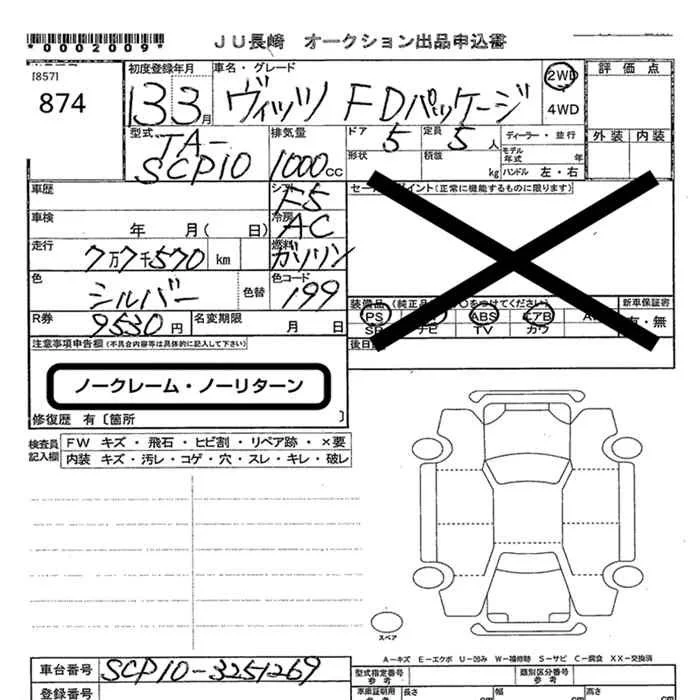 *0002009*
JU長崎 オークション出品申込書
[857]
874
初度登録年月
13 3月
車名・グレード
ヴィッツ FDパッケージ
2WD
4WD
評価点
外装 内装
型式
TA-
SCP10
排気量
1000cc
ドア 5
定員 5人
ディーラー・並行
形状
積載 kg
モデル年式 年
ハンドル 左・右
車歴
シフト
F5
車検 年 月( 日)
冷房
AC
走行
7万7千570 km
燃料
ガソリン
色
シルバー
色替
色コード
199
R券
9530円
名変期限 月 日
イント(正常に機能するものに限ります)
装備品
(純正品 ○をつけてください)
新車保証書
有・無
PS
ABS
エアB
ナビ
TV
カワ
後日
注意事項申告欄(不具合内容等は具体的に記入して下さい)
ノークレーム・ノーリターン
修復歴 有〔箇所 〕
検査員記入欄
FW キズ・飛石・ヒビ割・リペア跡・×要
内装 キズ・汚レ・コゲ・穴・スレ・キレ・破レ
スペア
A-キズ E-エクボ U-凹み W-補修跡 S-サビ C-腐食 XX-交換済
車台番号
SCP10-3251269
登録番号
型式指定番号
参考
類別区分番号
参考
車庫証明用
参考
長さ cm
幅 cm
高さ cm